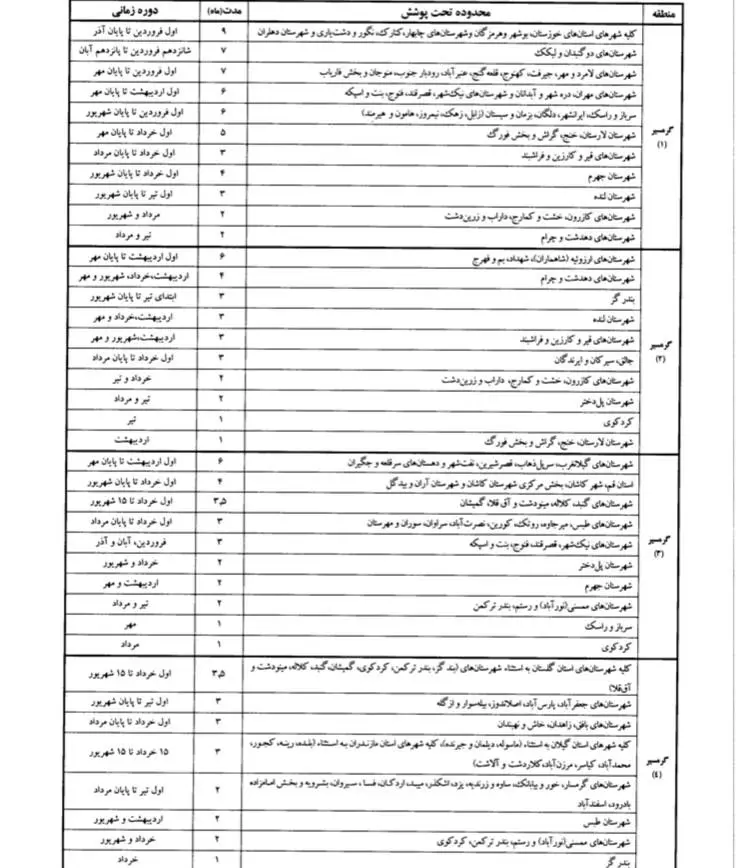 منطقه محدوده تحت پوشش مدت(ماه) دوره زمانی
گرمسیر (۱)
کلیه شهرهای استان‌های خوزستان، بوشهر وهرمزگان وشهرستان‌های چابهار،کنارک، نگور و دشت‌یاری و شهرستان دهلران ۹ اول فروردین تا پایان آذر
شهرستان‌های دوگنبدان و لیکک ۷ شانزدهم فروردین تا پانزدهم آبان
شهرستان‌های لامرد و مهر، جیرفت، کهنوج، قلعه گنج، عنبرآباد، رودبار جنوب، منوجان و بخش فاریاب ۷ اول فروردین تا پایان مهر
شهرستان‌های مهران، دره شهر و آبدانان و شهرستان‌های نیک‌شهر، قصرقند، فنوج، بنت و اسپکه ۶ اول اردیبهشت تا پایان مهر
سرباز و راسک، ایرانشهر، دلگان، بزمان و سیستان (زابل، زهک، نیمروز، هامون و هیرمند) ۶ اول فروردین تا پایان شهریور
شهرستان لارستان، خنج، گراش و بخش فورگ ۵ اول خرداد تا پایان مهر
شهرستان‌های قیر و کارزین و فراشبند ۳ اول خرداد تا پایان مرداد
شهرستان جهرم ۴ اول خرداد تا پایان شهریور
شهرستان لنده ۳ اول تیر تا پایان شهریور
شهرستان‌های کازرون، خشت و کمارج، داراب و زرین‌دشت ۲ مرداد و شهریور
شهرستان‌های دهدشت و چرام ۲ تیر و مرداد
گرمسیر (۲)
شهرستان‌های ارزوئیه (شاهماران)، شهداد، بم و فهرج ۶ اول اردیبهشت تا پایان مهر
شهرستان‌های دهدشت و چرام ۴ اردیبهشت،خرداد، شهریور و مهر
بندر گز ۳ ابتدای تیر تا پایان شهریور
شهرستان لنده ۳ اردیبهشت،خرداد و مهر
شهرستان‌های قیر و کارزین و فراشبند ۳ اردیبهشت،شهریور و مهر
جالق، سیرکان و ایرندگان ۳ اول خرداد تا پایان مرداد
شهرستان‌های کازرون، خشت و کمارج، داراب و زرین‌دشت ۲ خرداد و تیر
شهرستان پل‌دختر ۲ تیر و مرداد
کردکوی ۱ تیر
شهرستان لارستان، خنج، گراش و بخش فورگ ۱ اردیبهشت
گرمسیر (۳)
شهرستان‌های گیلانغرب، سرپل‌ذهاب، قصرشیرین، نفت‌شهر و دهستان‌های سرقلعه و جگیران ۶ اول اردیبهشت تا پایان مهر
استان قم، شهر کاشان، بخش مرکزی شهرستان کاشان و شهرستان آران و بیدگل ۴ اول خرداد تا پایان شهریور
شهرستان‌های گنبد، کلاله، مینودشت و آق قلا، گمیشان ۳,۵ اول خرداد تا ۱۵ شهریور
شهرستان‌های طبس، میرجاوه، رونک، کورین، نصرت‌آباد، سراوان، سوران و مهرستان ۳ اول خرداد تا پایان مرداد
شهرستان‌های نیک‌شهر، قصرقند، فنوج، بنت و اسپکه ۳ فروردین، آبان و آذر
شهرستان پل‌دختر ۲ خرداد و شهریور
شهرستان جهرم ۲ اردیبهشت و مهر
شهرستان‌های ممسنی(نورآباد) و رستم، بندر ترکمن ۲ تیر و مرداد
سرباز و راسک ۱ مهر
کردکوی ۱ مرداد
گرمسیر (۴)
کلیه شهرستان‌های استان گلستان به استثناء شهرستان‌های (بندگز، بندر ترکمن، کردکوی، گمیشان،گنبد، کلاله، مینودشت و
آق‌قلا) ۳,۵ اول خرداد تا ۱۵ شهریور
شهرستان‌های جعفرآباد، پارس‌آباد، اصلاندوز، بیله‌سوار و ازگله ۳ اول تیر تا پایان شهریور
شهرستان‌های بافق، زاهدان، خاش و نهبندان ۳ اول خرداد تا پایان مرداد
کلیه شهرهای استان گیلان به استثناء (ماسوله، دیلمان و جیرنده)، کلیه شهرهای استان مازندران به استثناء (بلده، رینه، کجور،
محمدآباد، کیاسر، مرزن‌آباد، کلاردشت و آلاشت) ۳ ۱۵ خرداد تا ۱۵ شهریور
شهرستان‌های گرمسار، خور و بیابانک، ساوه و زرندیه، یزد، اشکذر، میبد، اردکان، فسا، سیروان، بشرویه و بخش امامزاده
بادرود، اسفندآباد ۲ اول تیر تا پایان مرداد
شهرستان طبس ۲ اردیبهشت و شهریور
شهرستان‌های ممسنی(نورآباد) و رستم، بندر ترکمن، کردکوی ۲ خرداد و شهریور
بندر گز ۱ خرداد